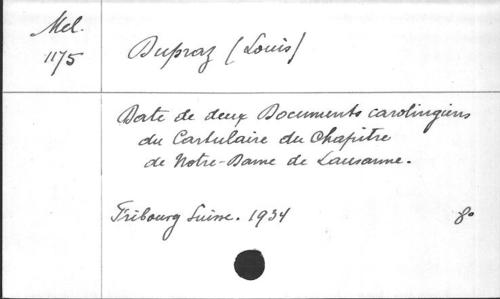 Mel.
1175
Dupraz (Louis)
Date de deux Documents carolingiens
du Cartulaire du Chapitre
de Notre-Dame de Lausanne.
Fribourg Suisse. 1934
8°